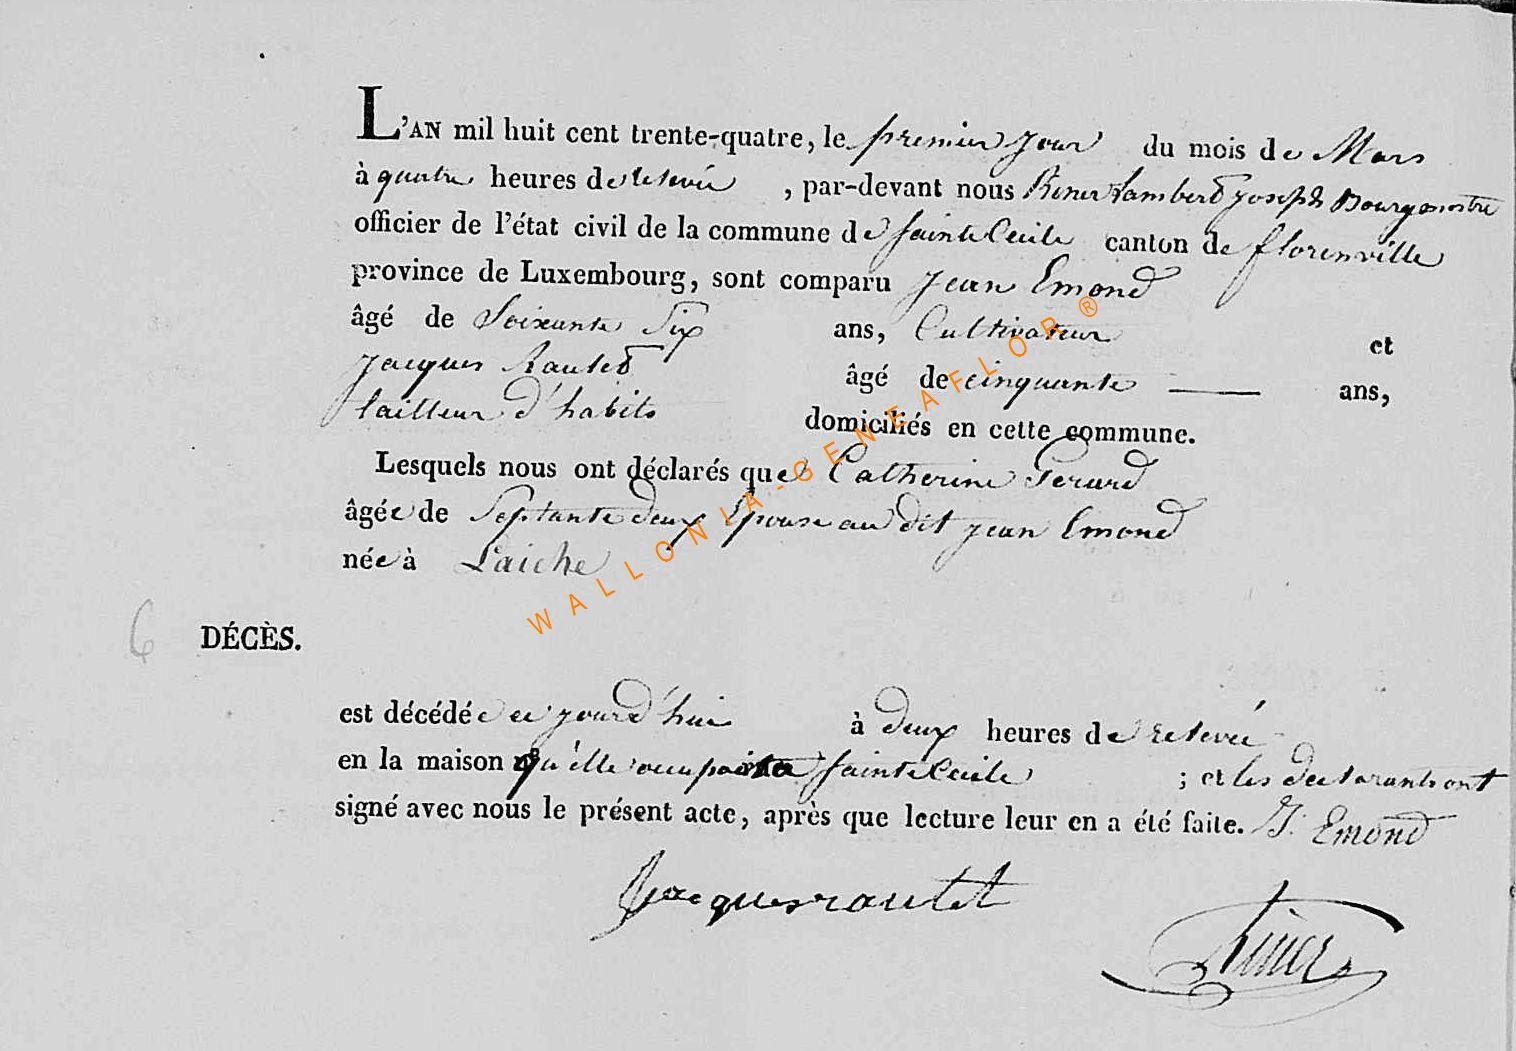 L'AN mil huit cent trente-quatre, le premier jour du mois de Mars
à quatre heures de relevée , par-devant nous Riner Lambert Joseph Bourgmestre
officier de l'état civil de la commune de Sainte Cecile canton de florenville
province de Luxembourg, sont comparu Jean Emond
âgé de Soixante Six ans, Cultivateur et
Jacques Rautet âgé de cinquante ans,
tailleur d'habits domiciliés en cette commune.
Lesquels nous ont déclarés que Catherine Gerard
âgée de Septante deux Epouse au dit jean Emond
née à Laiche
6 DÉCÈS.
est décédée ce jourd'hui à deux heures de relevée
en la maison qu'elle occupait a Sainte Cecile ; et les declarants ont
signé avec nous le présent acte, après que lecture leur en a été faite. J. Emond
Jacques rautet
Riner
WALLONIA-GENEAFLOR ®